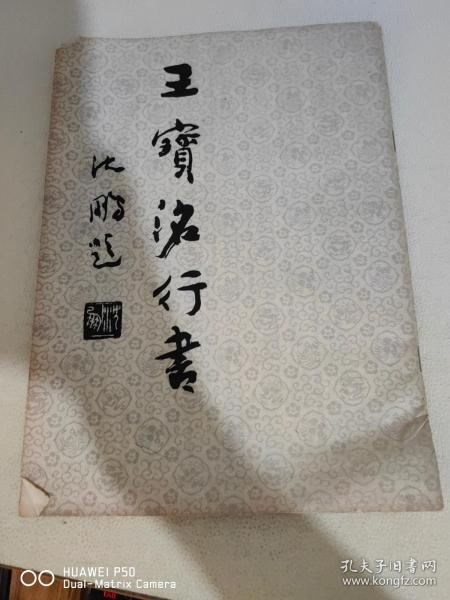 王寶洺行書
沈鹏題
HUAWEI P50
Dual-Matrix Camera
孔夫子旧书网
www.kongfz.com